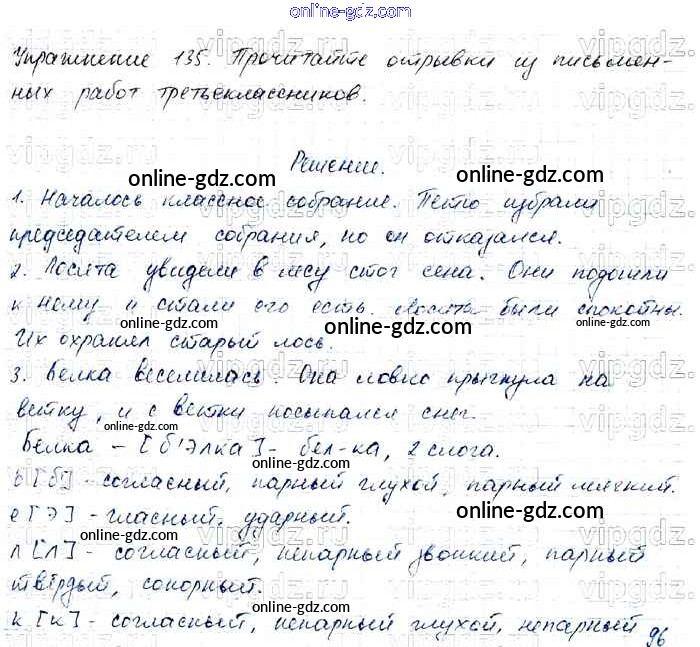 online-gdz.com
Упражнение 135. Прочитайте отрывки из письмен-
ных работ третьеклассников.
Решение.
online-gdz.com online-gdz.com
1. Началось классное собрание. Петю избрали
председателем собрания, но он отказался.
2. Лосята увидели в лесу стог сена. Они подошли
к нему и стали его есть. Лосята были спокойны.
online-gdz.com online-gdz.com online-gdz.com
Их охранял старый лось.
3. Белка веселилась. Она ловко прыгнула на
ветку, и с ветки посыпался снег.
Белка – [б'элка] – бел-ка, 2 слога.
online-gdz.com
б [б] - согласный, парный глухой, парный мягкий.
online-gdz.com
е [э] - гласный, ударный.
online-gdz.com
л [л] - согласный, непарный звонкий, парный
твёрдый, сонорный.
online-gdz.com online-gdz.com
к [к] - согласный, непарный глухой, непарный
96